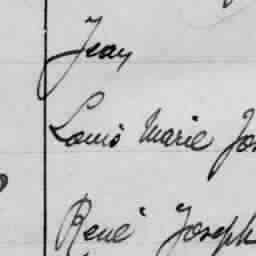 Jean
Louis Marie Jos
René Joseph